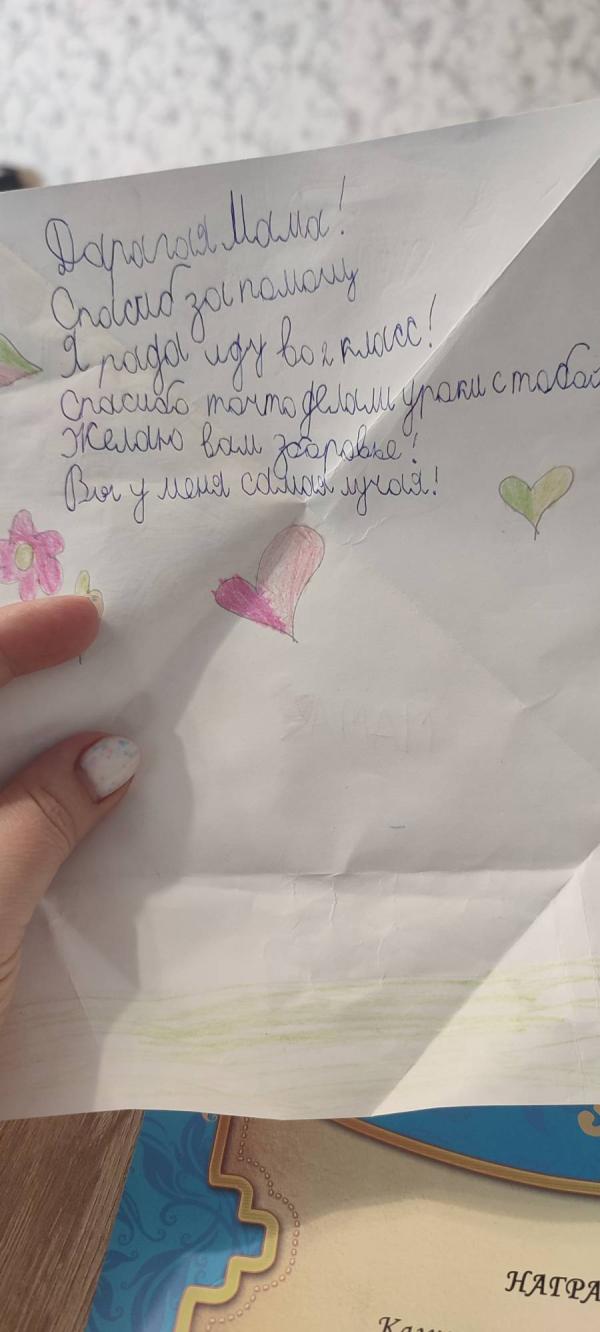 Дарагая Мама!
Спасиб за помощу
Я рада иду во 2 класс!
Спасибо то что делали уроки с тобой
Желаю вам здоровье!
Вы у меня самая лучая!
МАМА
НАГРА